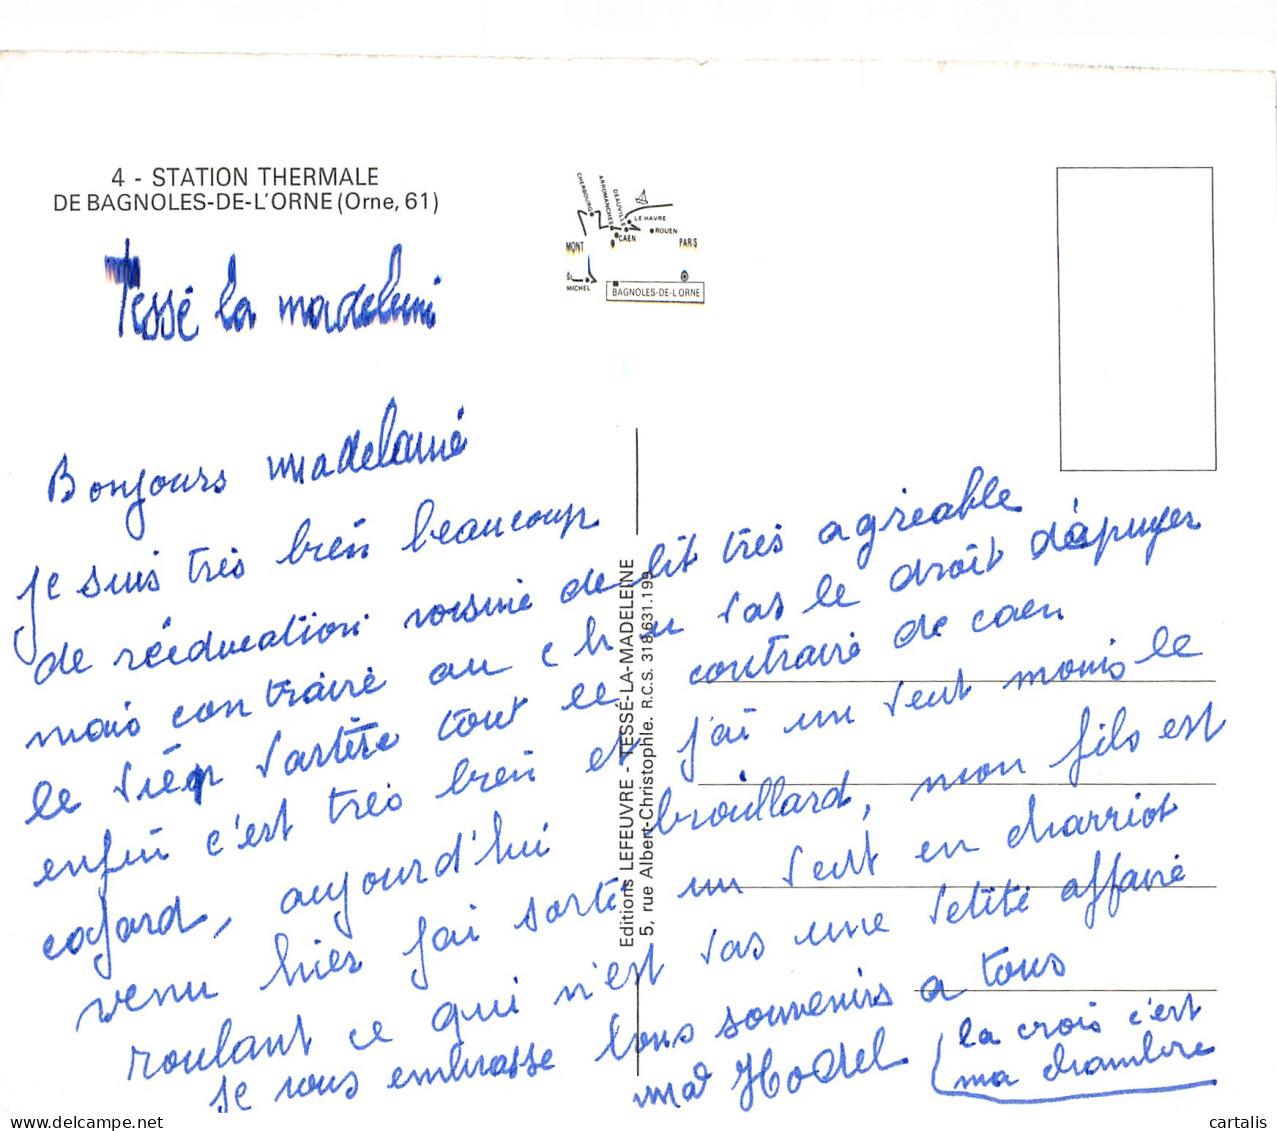 4 - STATION THERMALE
DE BAGNOLES-DE-L'ORNE (Orne, 61)
CHERBOURG
ARROMANCHES
DEAUVILLE
LE HAVRE
ROUEN
CAEN
MONT
PARIS
St
MICHEL
BAGNOLES-DE-L ORNE
Tessé la madeleini
Bonjours madelainé
Je suis très bien beaucoup
de rééducation voisine de lit très agréable
mais contraire au c h u pas le droit d'apuyer
le pied par tère tout le contraire de caen
enfin c'est très bien et j'ai un peut moins le
cafard, aujourd'hui brouillard, mon fils est
venu hier j'ai sorti un peut en charriot
roulant ce qui n'est pas une petite affaire
Je vous embrasse bons souvenirs a tous
md Hodel
la crois c'est
ma chambre
Editions LEFEUVRE - TESSÉ-LA-MADELEINE
5, rue Albert-Christophle. R.C.S. 318.631.199
© cartalis
delcampe.net